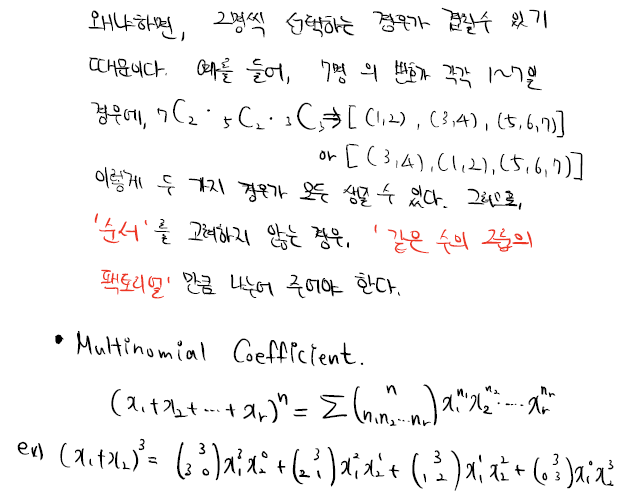 왜냐하면, 2명씩 선택하는 경우가 겹칠수 있기
때문이다. 예를 들어, 7명 의 번호가 각각 1~7일
경우에, ₇C₂ · ₅C₂ · ₃C₃ ⇒ [ (1,2) , (3,4) , (5,6,7)]
or [ (3,4), (1,2), (5,6,7)]
이렇게 두 가지 경우가 모두 생길 수 있다. 그러므로,
'순서'를 고려하지 않는 경우, '같은 수의 그룹의
팩토리얼' 만큼 나누어 주어야 한다.
• Multinomial Coefficient.
(x₁+x₂+⋯+x_r)ⁿ = Σ (n / n₁ n₂ ⋯ n_r) x₁^{n₁} x₂^{n₂} ⋯ x_r^{n_r}
ex) (x₁+x₂)³ = (3 / 3 0) x₁³x₂⁰ + (3 / 2 1) x₁²x₂¹ + (3 / 1 2) x₁¹x₂² + (3 / 0 3) x₁⁰x₂³